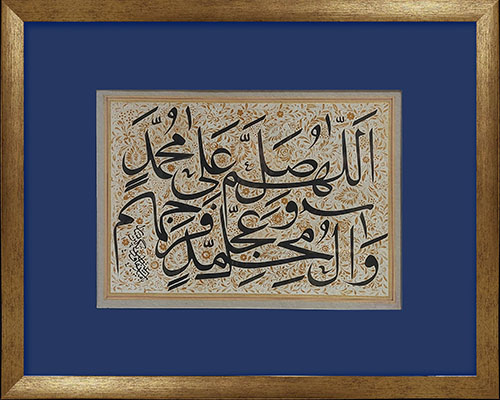 اللّهمّ صلّ علی محمّد
وآل محمّد وعجّل فرجهم